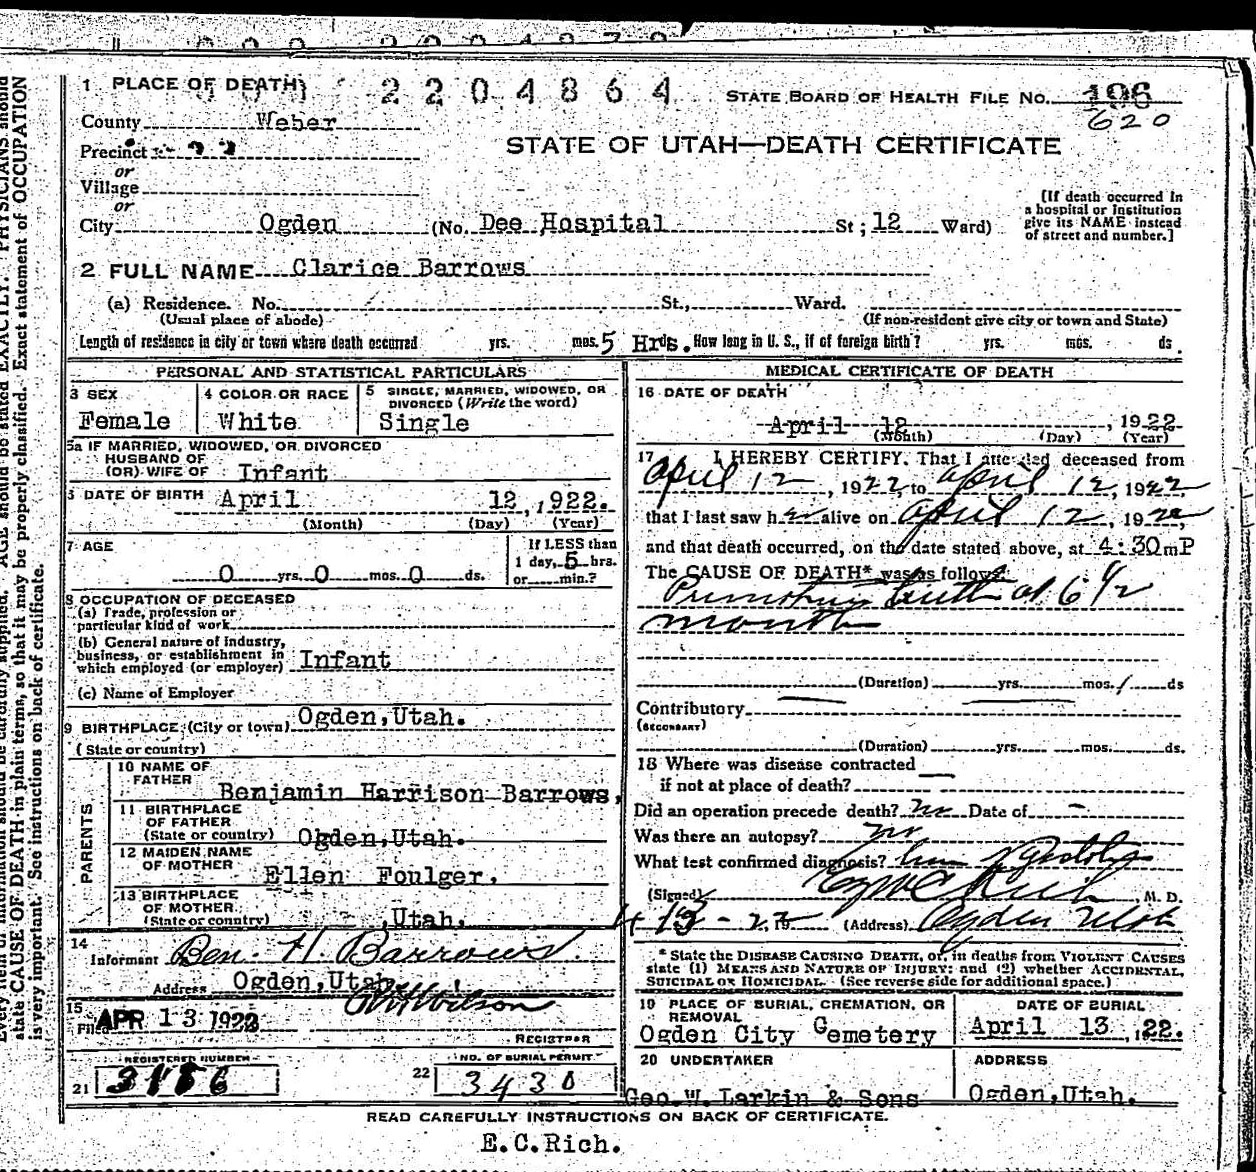 1 PLACE OF DEATH 2204864 STATE BOARD OF HEALTH FILE No. 196
620
County Weber
Precinct
STATE OF UTAH—DEATH CERTIFICATE
or
Village
or
City Ogden (No. Dee Hospital St; 12 Ward)
[If death occurred in
a hospital or institution
give its NAME instead
of street and number.]
2 FULL NAME Clarice Barrows
(a) Residence. No. St., Ward.
(Usual place of abode) (If non-resident give city or town and State)
Length of residence in city or town where death occurred yrs. mos. 5 Hrds. How long in U. S., if of foreign birth? yrs. mos. ds.
PERSONAL AND STATISTICAL PARTICULARS
3 SEX 4 COLOR OR RACE 5 SINGLE, MARRIED, WIDOWED, OR
DIVORCED (Write the word)
Female White Single
5a IF MARRIED, WIDOWED, OR DIVORCED
HUSBAND OF
(OR) WIFE OF Infant
6 DATE OF BIRTH April 12, 1922.
(Month) (Day) (Year)
7 AGE If LESS than
1 day, 5 hrs.
0 yrs. 0 mos. 0 ds. or min.?
8 OCCUPATION OF DECEASED
(a) Trade, profession or
particular kind of work
(b) General nature of industry,
business, or establishment in
which employed (or employer) Infant
(c) Name of Employer
9 BIRTHPLACE (City or town) Ogden, Utah.
(State or country)
PARENTS
10 NAME OF
FATHER
Benjamin Harrison Barrows,
11 BIRTHPLACE
OF FATHER
(State or country) Ogden, Utah.
12 MAIDEN NAME
OF MOTHER
Ellen Foulger.
13 BIRTHPLACE
OF MOTHER
(State or country) ,Utah.
14
Informant Ben. H. Barrows.
Address Ogden, Utah
15
Filed APR 13 1922 Wilson
REGISTRAR
REGISTERED NUMBER NO. OF BURIAL PERMIT
21 3186 22 3430
MEDICAL CERTIFICATE OF DEATH
16 DATE OF DEATH
April 12, 1922
(Month) (Day) (Year)
17 I HEREBY CERTIFY, That I attended deceased from
April 12, 1922, to April 12, 1922
that I last saw h alive on April 12, 1922,
and that death occurred, on the date stated above, at 4:30 m P
The CAUSE OF DEATH* was as follows:
Premature birth at 6 1/2
month
(Duration) yrs. mos. 1 ds
Contributory
(SECONDARY)
(Duration) yrs. mos. ds.
18 Where was disease contracted
if not at place of death?
Did an operation precede death? no Date of -
Was there an autopsy? no
What test confirmed diagnosis?
(Signed) Rich M. D.
4/13-22, 19 (Address) Ogden Utah
* State the DISEASE CAUSING DEATH, or, in deaths from VIOLENT CAUSES
state (1) MEANS AND NATURE OF INJURY; and (2) whether ACCIDENTAL,
SUICIDAL OR HOMICIDAL. (See reverse side for additional space.)
19 PLACE OF BURIAL, CREMATION, OR
REMOVAL
Ogden City Cemetery
DATE OF BURIAL
April 13, 22.
20 UNDERTAKER
Geo. W. Larkin & Sons
ADDRESS
Ogden, Utah.
READ CAREFULLY INSTRUCTIONS ON BACK OF CERTIFICATE.
E.C.Rich.
AGE should be stated EXACTLY. PHYSICIANS should
state CAUSE OF DEATH in plain terms, so that it may be properly classified. Exact statement of OCCUPATION
is very important. See instructions on back of certificate.